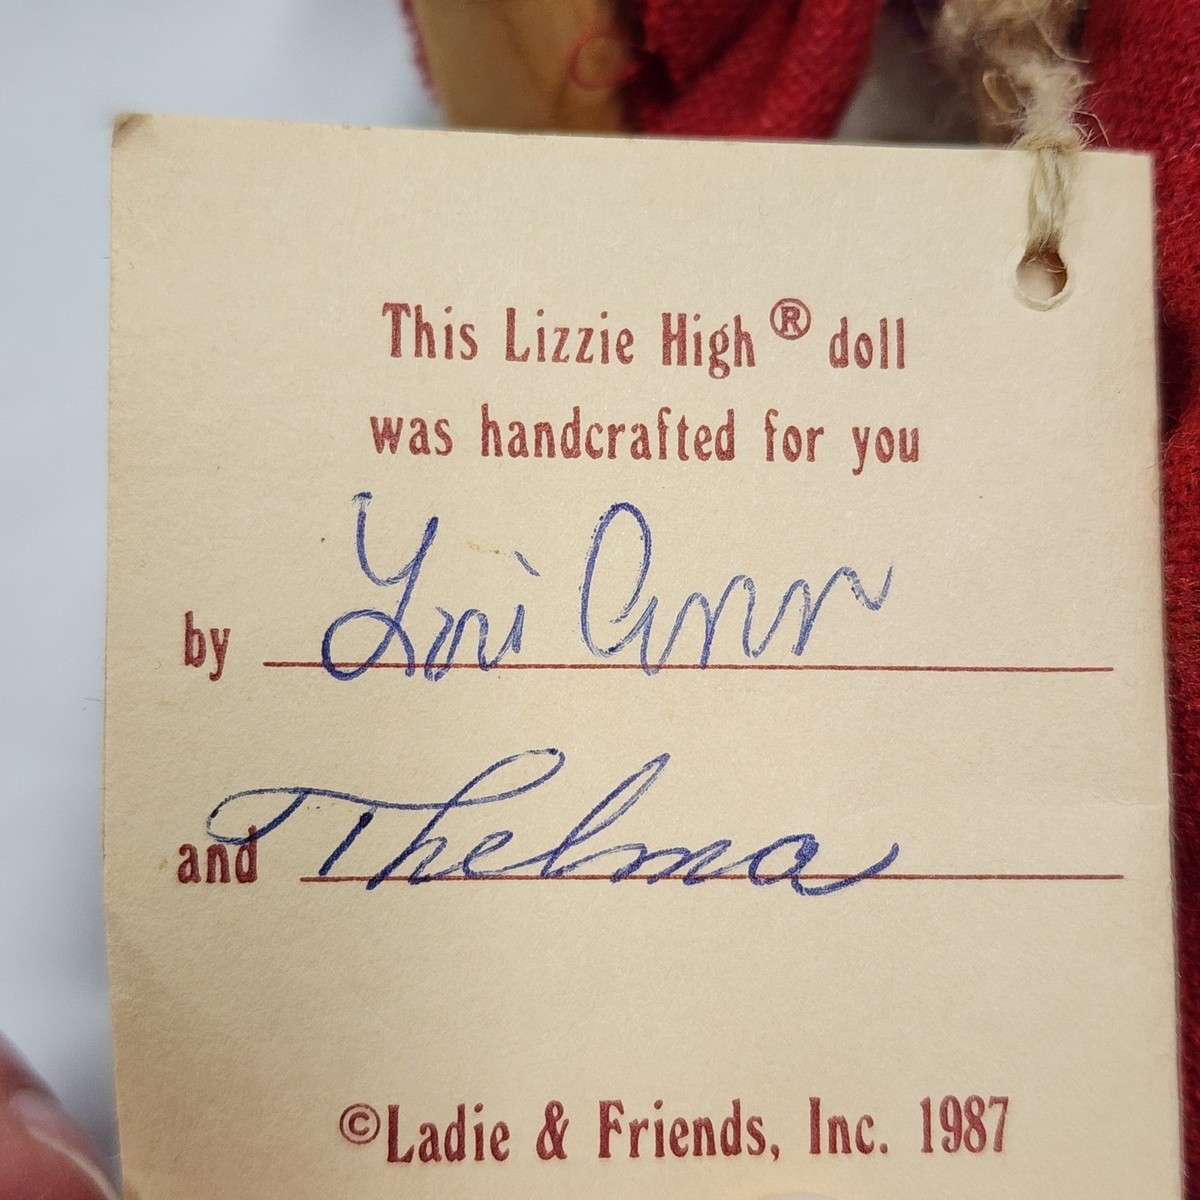 This Lizzie High® doll
was handcrafted for you
by Lori Ann
and Thelma
©Ladie & Friends, Inc. 1987